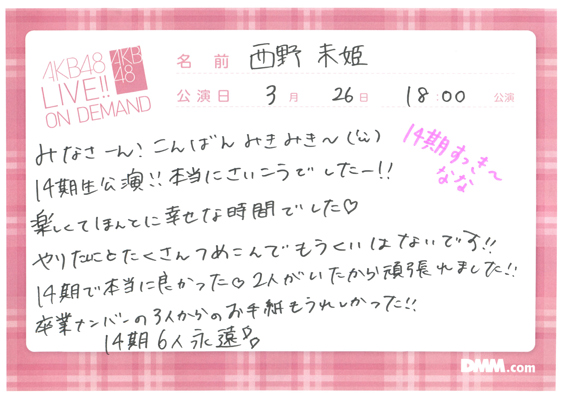 AKB48
LIVE!!
ON DEMAND
AKB
48
名前 西野 未姫
公演日 3月 26日 18:00 公演
みなさーん！こんばんみきみき〜(˙ω˙)
14期すっき〜
なな
14期生公演!!本当にさいこうでしたー!!
楽しくてほんとに幸せな時間でした♡
やりたいことたくさんつめこんでもうくいはないです!!
14期で本当に良かった♡2人がいたから頑張れました!!
卒業メンバーの3人からのお手紙もうれしかった!!
14期6人永遠♡
DMM.com